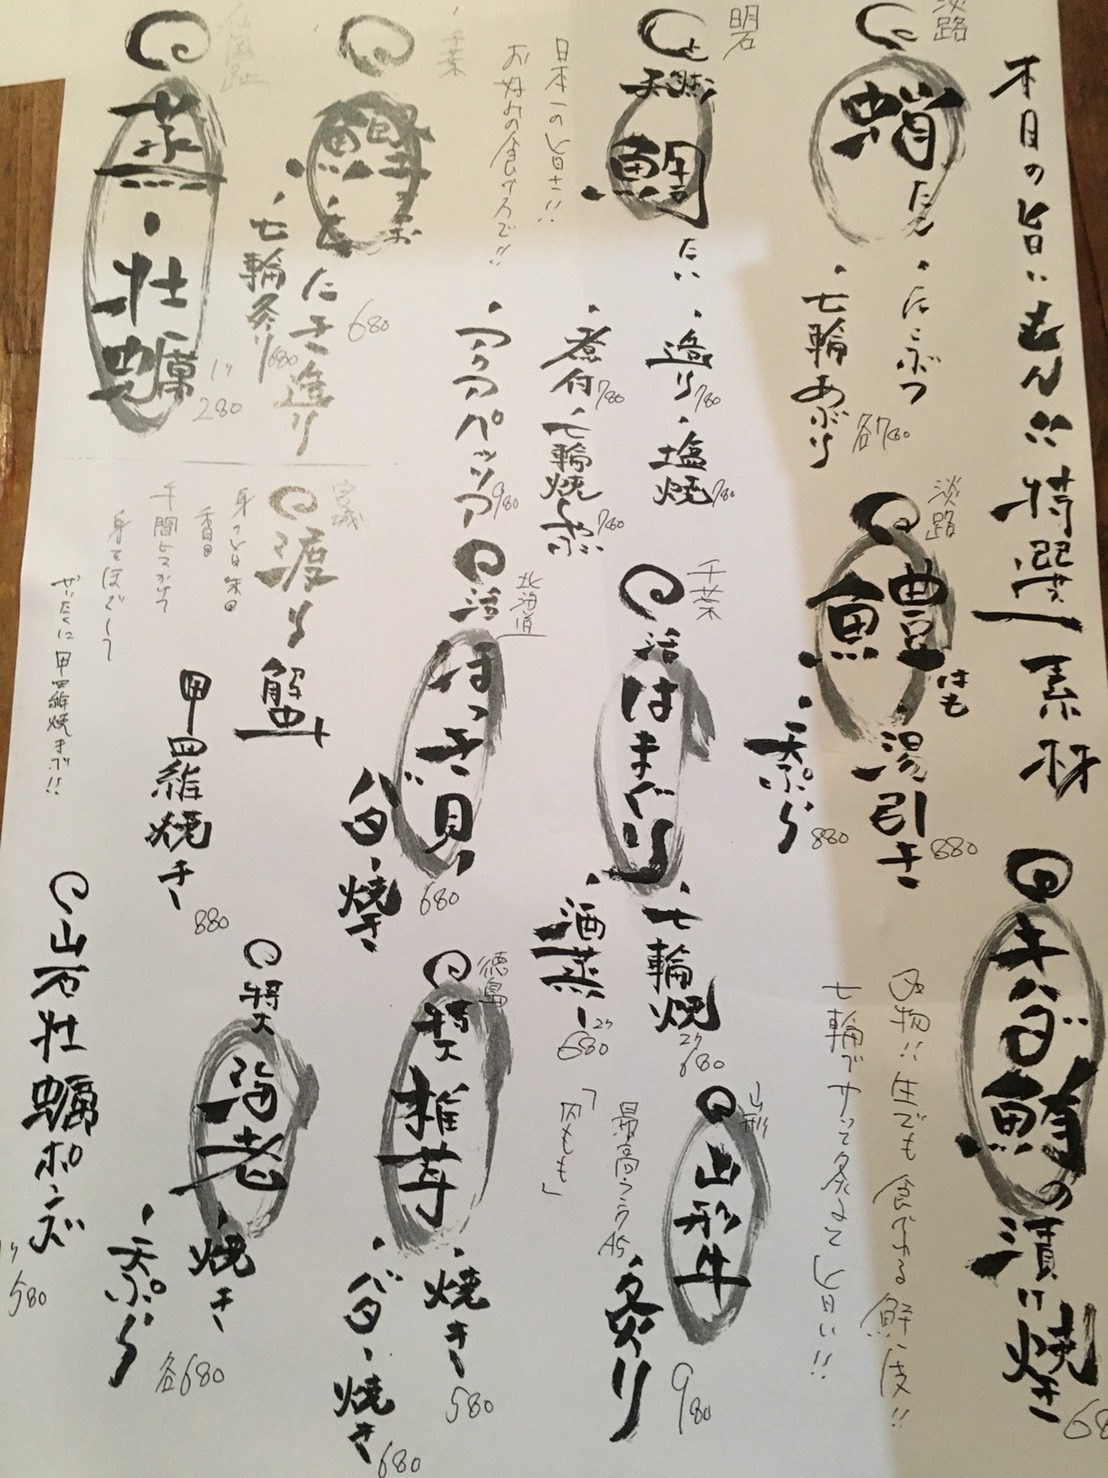 本月の旨いもん!!特選素材
キハダ鮪の漬け焼き
淡路
蛸
・たこぶつ
・七輪あぶり
各780
淡路
鱧
はも
・湯引き
880
・天ぷら
880
刃物!!生でも食べれる鮮度!!
七輪でサッて炙って旨い!!
明石
天然
鯛
たい
・造り
780
・塩焼
780
・煮付
780
・七輪焼しゃぶ
780
・アクアパッツア
980
日本一の旨さ!!
お好みの食べ方で!!
千葉
活はまぐり
・七輪焼
2ケ
680
・酒蒸し
2ケ
680
山形
山形牛
炙り
980
最高ランクA5
「内もも」
千葉
鰹
かつお
・たたき造り
680
・七輪炙り
680
北海道
活ほっき貝
バター焼き
680
徳島
特大
椎茸
・焼き
580
・バター焼き
680
蒸し牡蠣
1ケ
280
宮城
渡り蟹
甲羅焼き
880
身をほぐして
ぜいたくに甲羅焼きで!!
特大
海老
・焼き
・天ぷら
各680
岩牡蠣ポンズ
1ケ
580